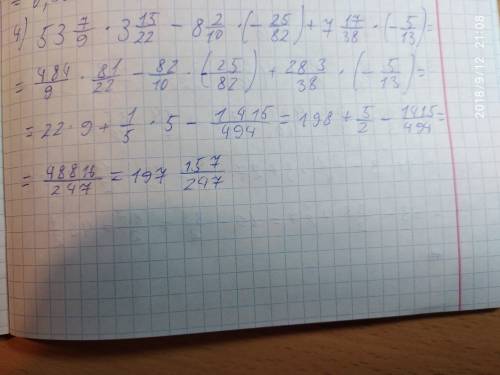 4) 53 7/9 · 3 15/22 - 8 2/10 · (- 25/82) + 7 17/38 · (- 5/13) =
= 484/9 · 81/22 - 82/10 · (- 25/82) + 283/38 · (- 5/13) =
= 22 · 9 + 1/5 · 5 - 1415/494 = 198 + 5/2 - 1415/494 =
= 48816/247 = 197 157/247
2018/9/12 21:08